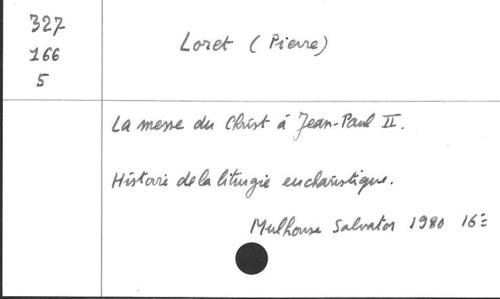 327
166
5
Loret (Pierre)
La messe du Christ à Jean-Paul II.
Histoire de la liturgie eucharistique.
Mulhouse Salvator 1980 16=